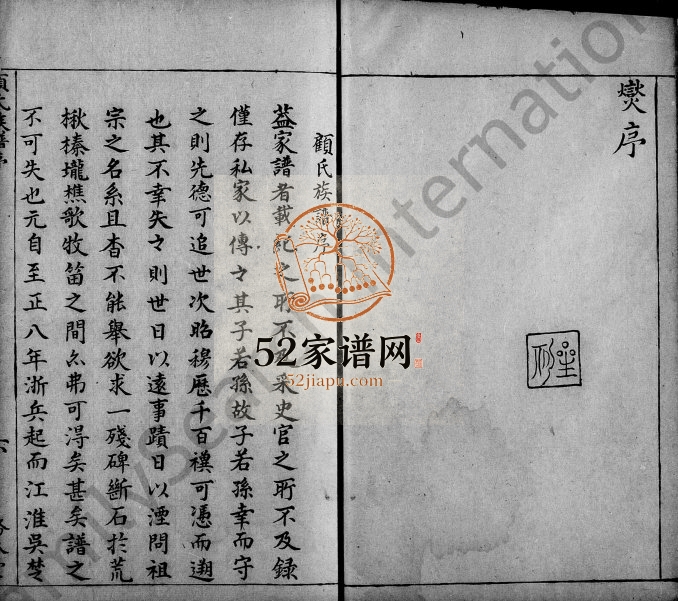 爕序
顧氏族譜序
葢家譜者載記之所不及采史官之所不及録
僅存私家以傳々其子若孫故子若孫幸而守
之則先德可追世次昭穆歴千百禩可憑而遡
也其不幸失々則世日以遠事蹟日以湮問祖
宗之名系且杳不能舉欲求一殘碑斷石扵荒
楸榛壠樵歌牧笛之間亦弗可淂矣甚矣譜之
不可失也元自至正八年浙兵起而江淮吳楚
52家谱网
52jiapu.com
FamilySearch International